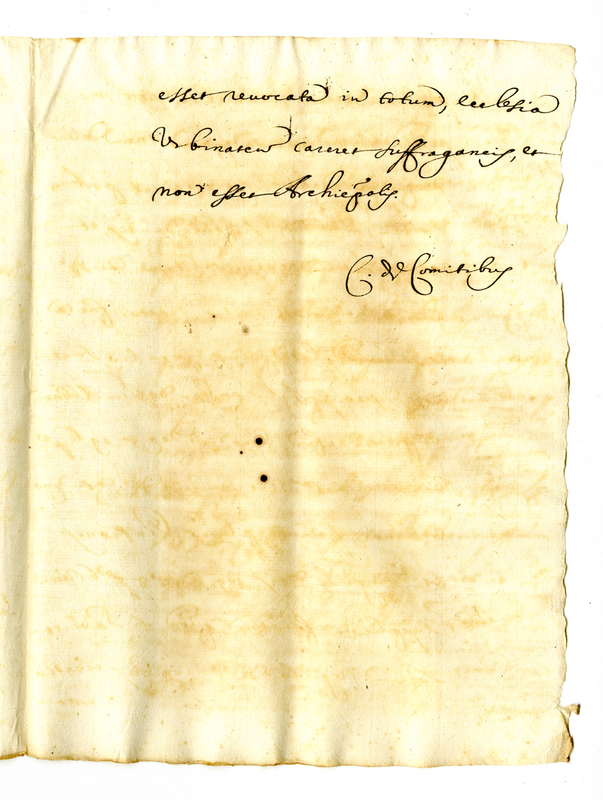 esset revocata in totum, Ecclesia
Urbinaten careret suffraganeis, et
non esset Archiepālis.
C. de Comitibus